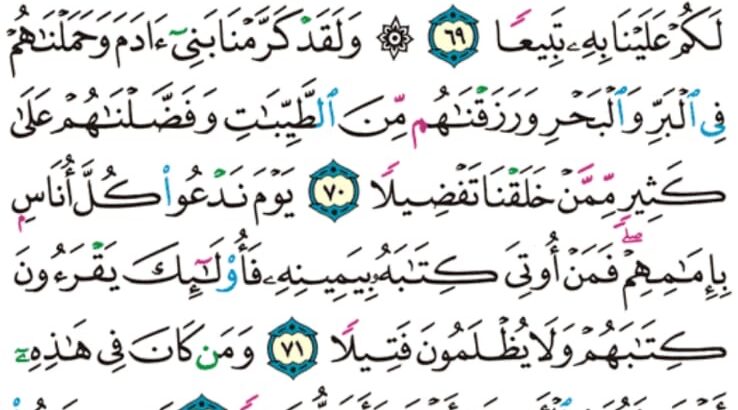 لَكُمْ عَلَيْنَا بِهِۦ تَبِيعًا ٦٩ ۞ وَلَقَدْ كَرَّمْنَا بَنِىٓ ءَادَمَ وَحَمَلْنَٰهُمْ
فِى ٱلْبَرِّ وَٱلْبَحْرِ وَرَزَقْنَٰهُم مِّنَ ٱلطَّيِّبَٰتِ وَفَضَّلْنَٰهُمْ عَلَىٰ
كَثِيرٍ مِّمَّنْ خَلَقْنَا تَفْضِيلًا ٧٠ يَوْمَ نَدْعُوا۟ كُلَّ أُنَاسٍۭ
بِإِمَٰمِهِمْ ۖ فَمَنْ أُوتِىَ كِتَٰبَهُۥ بِيَمِينِهِۦ فَأُو۟لَٰٓئِكَ يَقْرَءُونَ
كِتَٰبَهُمْ وَلَا يُظْلَمُونَ فَتِيلًا ٧١ وَمَن كَانَ فِى هَٰذِهِۦٓ